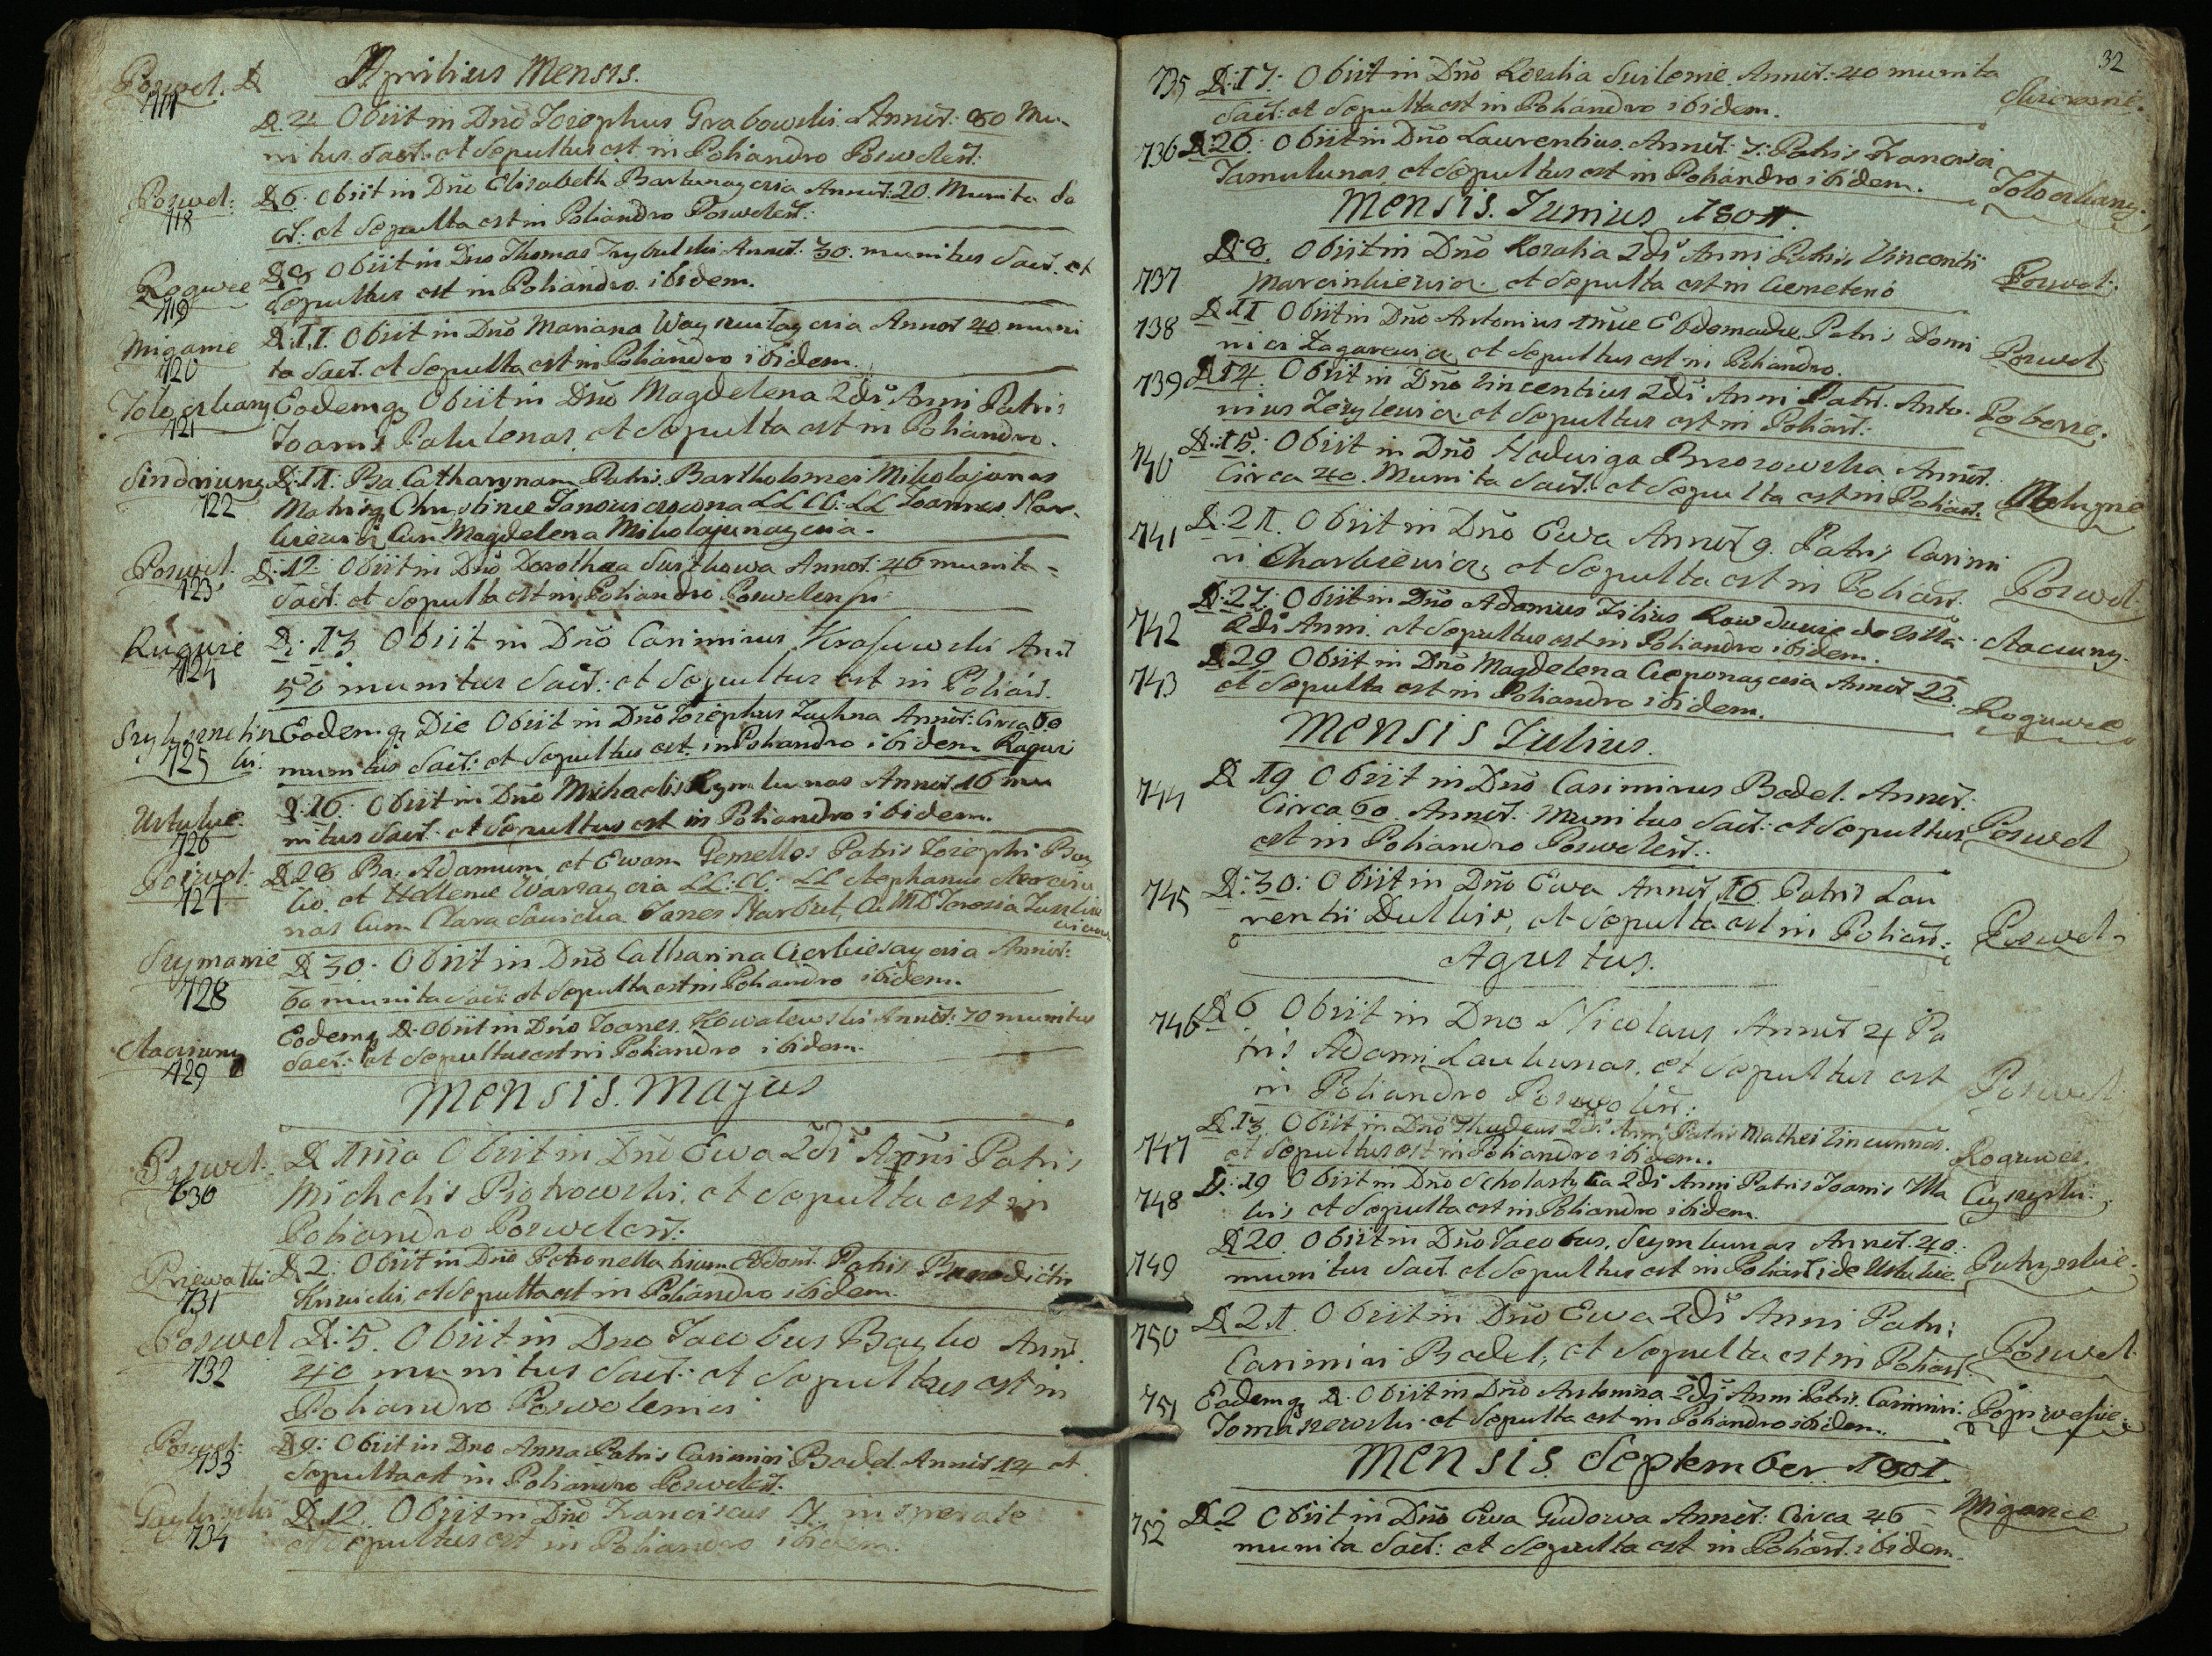 Aprilius Mensis.
Poswol. D
717
D. 4 Obiit in Dno Josephus Grabowski Annor: 80 Mu-
nitus Sacr: et Sepultus est in Poliandro Poswolens:
Poswol:
718
D 6. Obiit in Dno Elisabeth Bartunaycia Annor: 20. Munita Sa
cr: et Sepulta est in Poliandro Poswolens:
Roguvie
719
D 8 Obiit in Dno Thomas Trybulski Annor: 30. munitus Sacr. et
Sepultus est in Poliandro ibidem.
Migonie
720
D. 11. Obiit in Dno Mariana Annor 40 muni
ta Sacr. et Sepulta est in Poliandro ibidem.
721
Eodemq Obiit in Dno Magdelena 2di Anni Patris
Joanis Palulenas et Sepulta est in Poliandro.
Sindriuny
722
D: 11: Ba Catharynam Patris Bartholomei Mikolajunas
Matrisq Christinae LL CC: LL Joannes Nar-
kiewicz Cum Magdelena Mikolajunaycia.
Poswol.
723
D. 12 Obiit in Dno Dorothea Annor: 46 munita
Sacr. et Sepulta est in Poliandro Poswolensi
Ruguvie
724
D: 13 Obiit in Dno Casimirus Krasuwski Anor
50 munitus Sacr: et Sepultus est in Polian.
725
Eodemq Die Obiit in Dno Josephus Annor: Circa 60
munitus Sacr: et Sepultus est in Poliandro ibidem
Ustukie
726
D. 16. Obiit in Dno Michaelis Annor. 16 mu
nitus Sacr. et Sepultus est in Poliandro ibidem.
Poswol.
727
D 28 Ba. Adamum et Ewam Gemellos Patris Josephi Bay
ko et Hellenae LL: CC: LL Stephanus
nas Cum Clara Janes Narbut, Cu
728
D 30. Obiit in Dno Catharina Annor:
60 munita Sacr: et Sepulta est in Poliandro ibidem.
Staciuny
729
Eodemq D. Obiit in Dno Joanes Kowalewski Annor: 70 munitus
Sacr: et Sepultus est in Poliandro ibidem.
Mensis. Majus
Poswol.
730
D 1ma Obiit in Dno Ewa 2di Anni Patris
Michelis Piotrowski, et Sepulta est in
Poliandro Poswolens:
731
D 2: Obiit in Dno Petronella Patris Benedicti
et Sepulta est in Poliandro ibidem.
Poswol
732
D: 5. Obiit in Dno Jacobus Bayko Ann.
40 munitus Sacr: et Sepultus est in
Poliandro Poswolensi
Poswol:
733
D 9: Obiit in Dno Anna Patris Casimiri Bodel Annor 14 et
Sepulta est in Poliandro Poswolens.
734
D 12. Obiit in Dno Franciscus
et Sepultus est in Poliandro ibidem.
32
735 D. 17. Obiit in Dno Rosalia Annor: 40 munita
Sacr: et Sepulta est in Poliandro ibidem.
736 D 26: Obiit in Dno Laurentius. Annor: Patris Francisci
Tamulunas et Sepultus est in Poliandro ibidem.
Mensis. Junius 1801.
737
D. 8. Obiit in Dno Rosalia 2di Anni Patris Vincentii
Marcinkiewicz et Sepulta est in Cemeterio
Poswol.
738
D 11 Obiit in Dno Antonius Ebdomadae Patris Domi
nici Zagarewicz et Sepultus est in Poliandro.
Poswol
739 D 14. Obiit in Dno Vincentius 2di Anni Patr. Anto-
nius et Sepultus est in Polian:
740 D: 15: Obiit in Dno Hedwiga Brozowska Annor.
Circa 40. Munita Sacr. et Sepulta est in Polian:
741 D. 21. Obiit in Dno Ewa Annor 9. Patris Casimi
ri et Sepulta est in Polian
Poswol
742
D. 27: Obiit in Dno Adamus Filius
2di Anni. et Sepultus est in Poliandro ibidem.
Staciuny
743
D 29 Obiit in Dno Magdelena Annor 22.
et Sepulta est in Poliandro ibidem.
Roguvie
Mensis Julius.
744
D 19 Obiit in Dno Casimirus Bodel. Annor:
Circa 60. Annor. Munitus Sacr: et Sepultus
est in Poliandro Poswolens:
Poswol
745
D: 30: Obiit in Dno Ewa Annor 16 Patris Lau
rentii Dulkis, et Sepulta est in Polian:
Poswol
Agustus.
746 D 6 Obiit in Dno Nicolaus Annor 4 Pa
tris Adami Laukunas, et Sepultus est
in Poliandro Poswolens:
Poswol
747
D. 13. Obiit in Dno Thadeus 2di Anni Patris Mathei
et Sepultus est in Poliandro ibidem.
Roguvie.
748
D. 19 Obiit in Dno Scholastyka 2di Anni Patris Joanis Ma
kis et Sepulta est in Poliandro ibidem.
749
D 20. Obiit in Dno Jacobus Szymkunas Annor. 40.
munitus Sacr et Sepultus est in Polian de Ustukie.
750
D 21. Obiit in Dno Ewa 2di Anni Patris
Casimiri Bodel, et Sepulta est in Polian
Poswol
751
Eodemq D. Obiit in Dno Antonina 2di Anni Patris Casimiri
Tomaszewski et Sepulta est in Poliandro ibidem.
Mensis. September 1801.
752
D. 2 Obiit in Dno Ewa Gudowa Annor: Circa 46
munita Sacr: et Sepulta est in Polian. ibidem.
Migonie